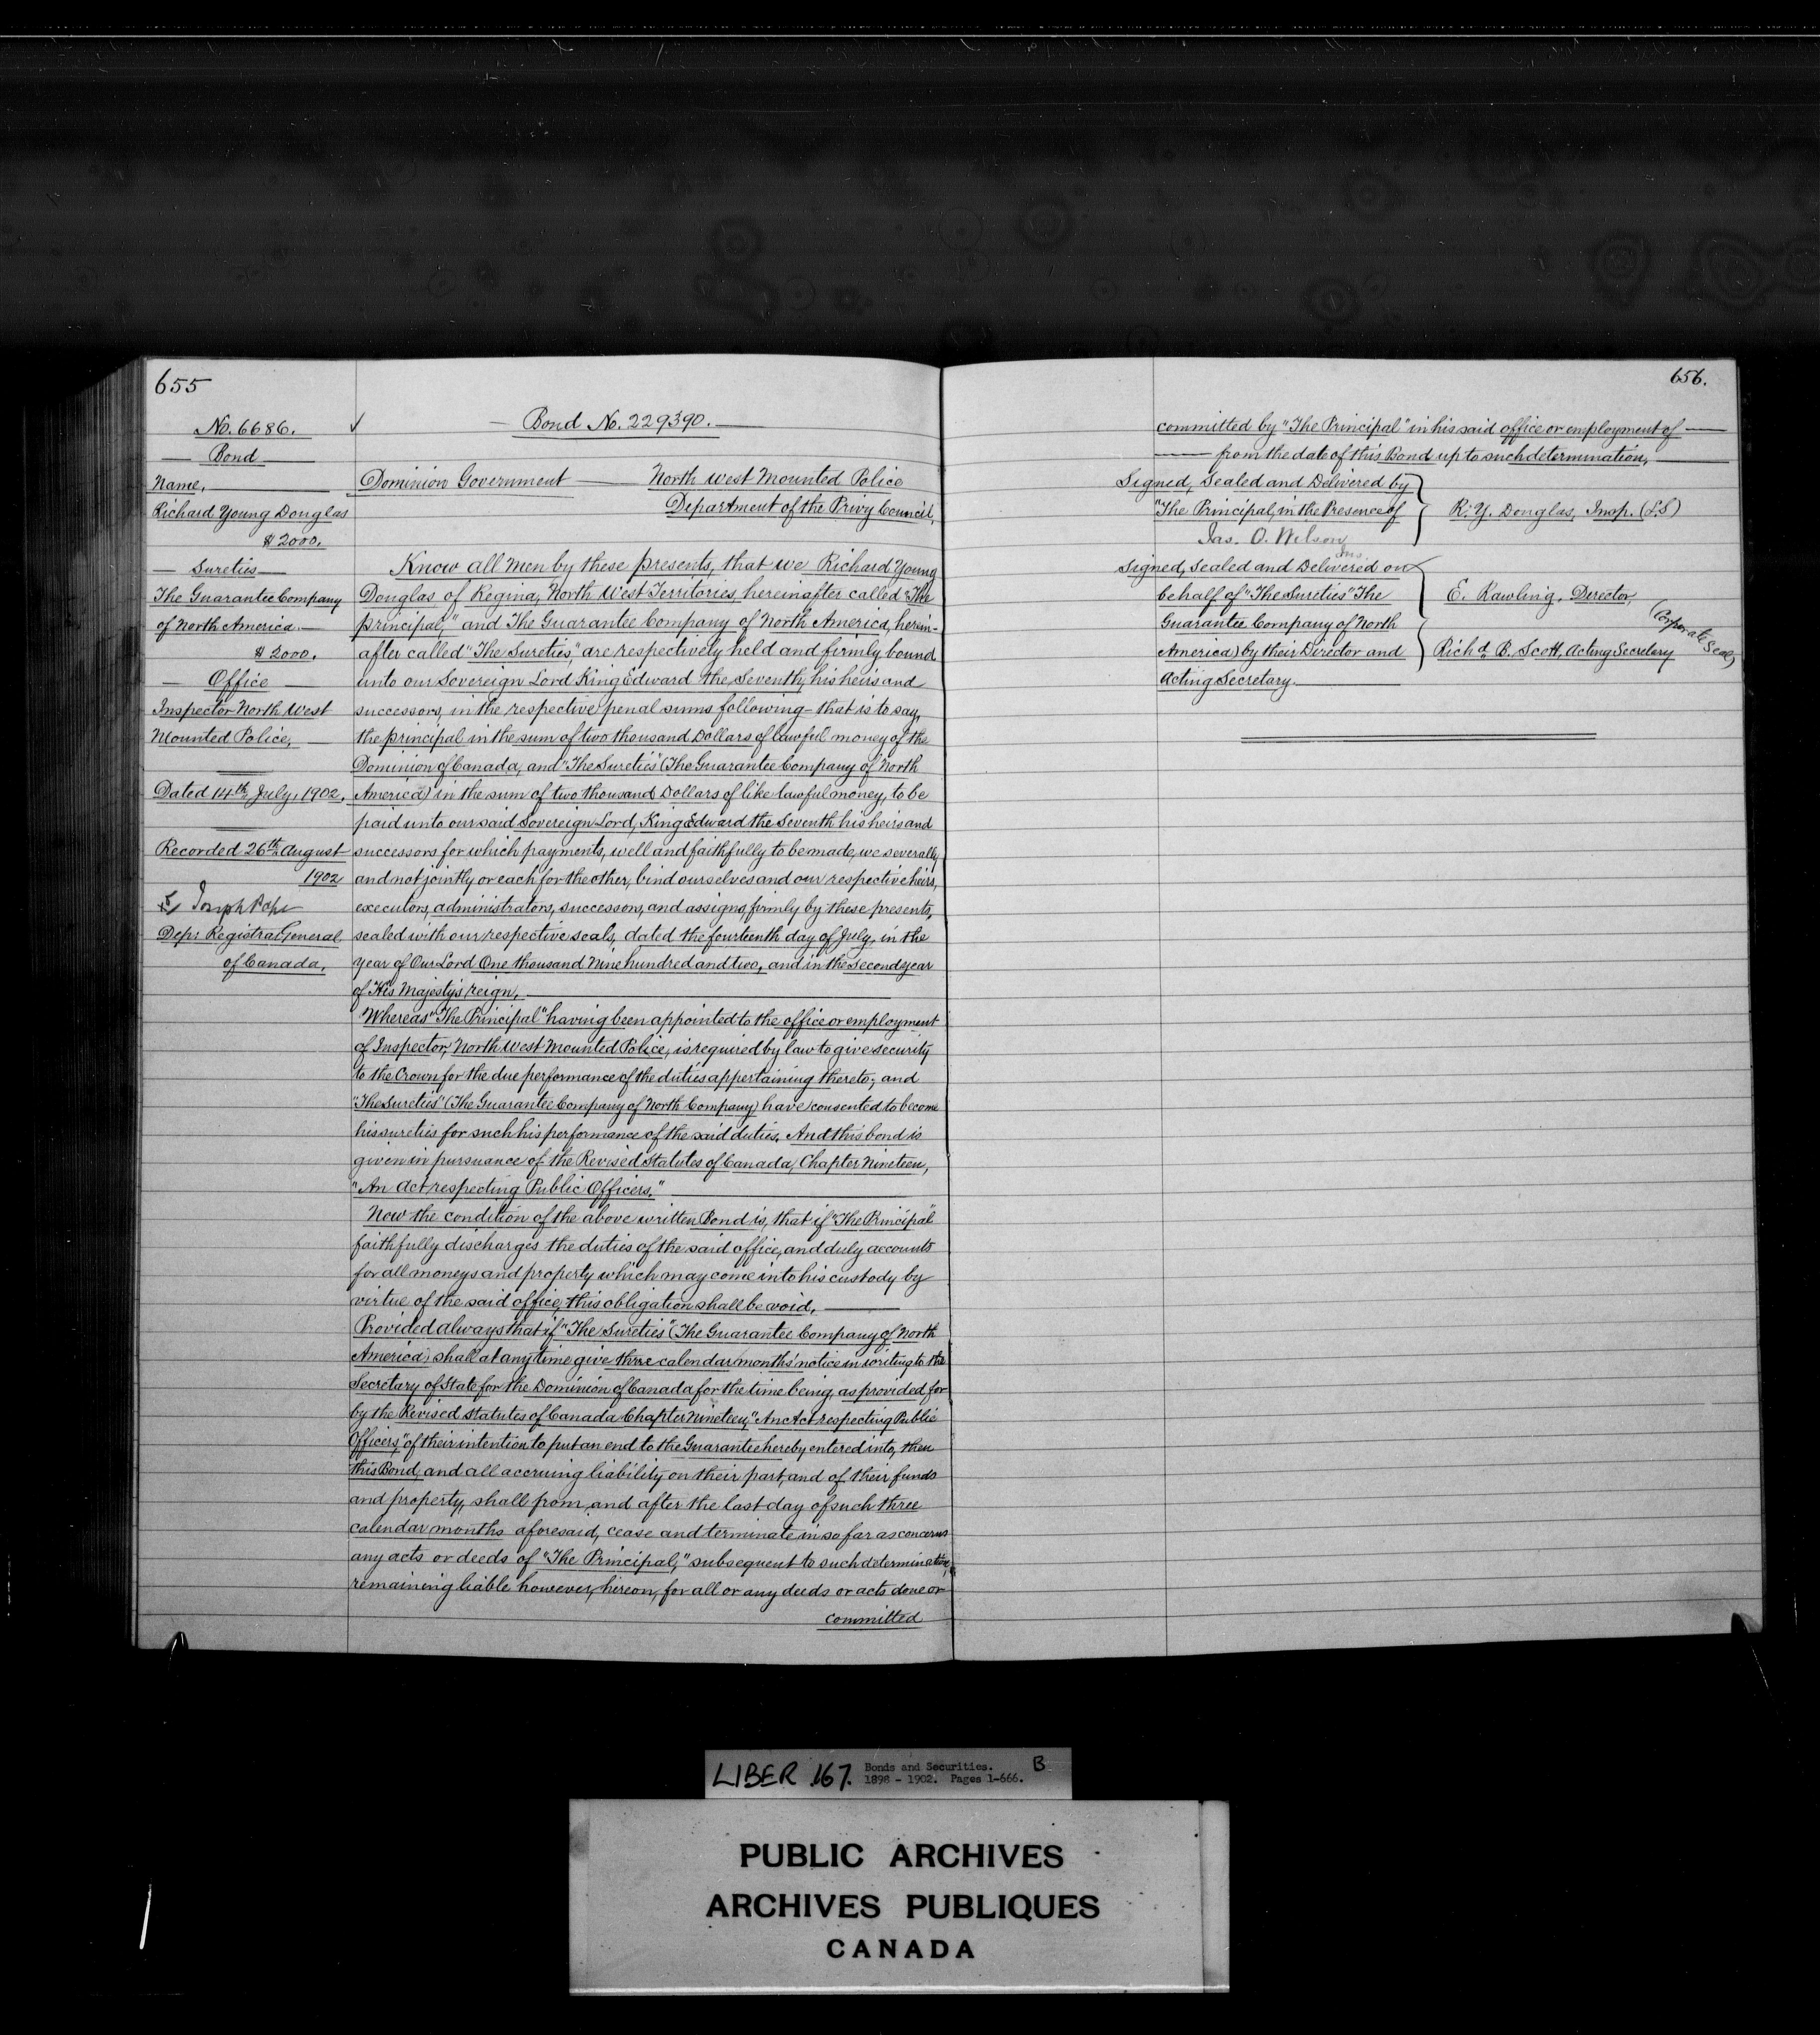 655
No. 6686.
Bond
Name.
Richard Young Douglas
$2000.
Sureties
The Guarantee Company
of North America.
$2000.
Office
Inspector North West
Mounted Police,
Dated 14th July, 1902.
Recorded 26th August
1902
Joseph Pope
Dep: Registrar General
of Canada,
Bond No. 229390.
Dominion Government — North West Mounted Police
Department of the Privy Council,
Know all Men by these presents, that we Richard Young
Douglas of Regina, North West Territories, hereinafter called "The
principal," and The Guarantee Company of North America, herein-
after called "The Sureties," are respectively held and firmly bound
unto our Sovereign Lord King Edward the Seventh, his heirs and
successors, in the respective penal sums following - that is to say,
the principal in the sum of two thousand Dollars of lawful money of the
Dominion of Canada, and "The Sureties" (The Guarantee Company of North
America) in the sum of two thousand Dollars of like lawful money, to be
paid unto our said Sovereign Lord, King Edward the Seventh his heirs and
successors for which payments, well and faithfully to be made, we severally
and not jointly or each for the other, bind ourselves and our respective heirs,
executors, administrators, successors, and assigns, firmly by these presents,
sealed with our respective seals, dated the fourteenth day of July, in the
year of Our Lord One thousand Nine hundred and two, and in the second year
of His Majesty's reign,
Whereas "The Principal" having been appointed to the office or employment
of Inspector, North West Mounted Police, is required by law to give security
to the Crown for the due performance of the duties appertaining thereto; and
"The Sureties" (The Guarantee Company of North Company) have consented to become
his sureties for such his performance of the said duties. And this bond is
given in pursuance of the Revised Statutes of Canada, Chapter Nineteen,
"An Act respecting Public Officers."
Now the condition of the above written Bond is, that if "The Principal"
faithfully discharges the duties of the said office, and duly accounts
for all moneys and property which may come into his custody by
virtue of the said office, this obligation shall be void,
Provided always that if "The Sureties" (The Guarantee Company of North
America) shall at any time give three calendar months' notice in writing to the
Secretary of State for the Dominion of Canada for the time being, as provided for
by the Revised Statutes of Canada Chapter Nineteen, "An Act respecting Public
Officers," of their intention to put an end to the Guarantee hereby entered into, then
this Bond, and all accruing liability on their part, and of their funds
and property, shall from and after the last day of such three
calendar months aforesaid, cease and terminate in so far as concerns
any acts or deeds of "The Principal," subsequent to such determination,
remaining liable however, hereon, for all or any deeds or acts done or
committed
656.
committed by "The Principal" in his said office or employment of
from the date of this Bond up to such determination,
Signed, Sealed and Delivered by
"The Principal, in the Presence of
Jas. O. Wilson
Ins.
R. Y. Douglas, Insp. (L.S)
Signed, Sealed and Delivered on
behalf of "The Sureties" The
Guarantee Company of North
America) by their Director and
Acting Secretary.
E. Rawling, Director,
Richd. B. Scott, Acting Secretary
(Corporate Seal)
LIBER 167. Bonds and Securities. B
1898 - 1902. Pages 1-666.
PUBLIC ARCHIVES
ARCHIVES PUBLIQUES
CANADA